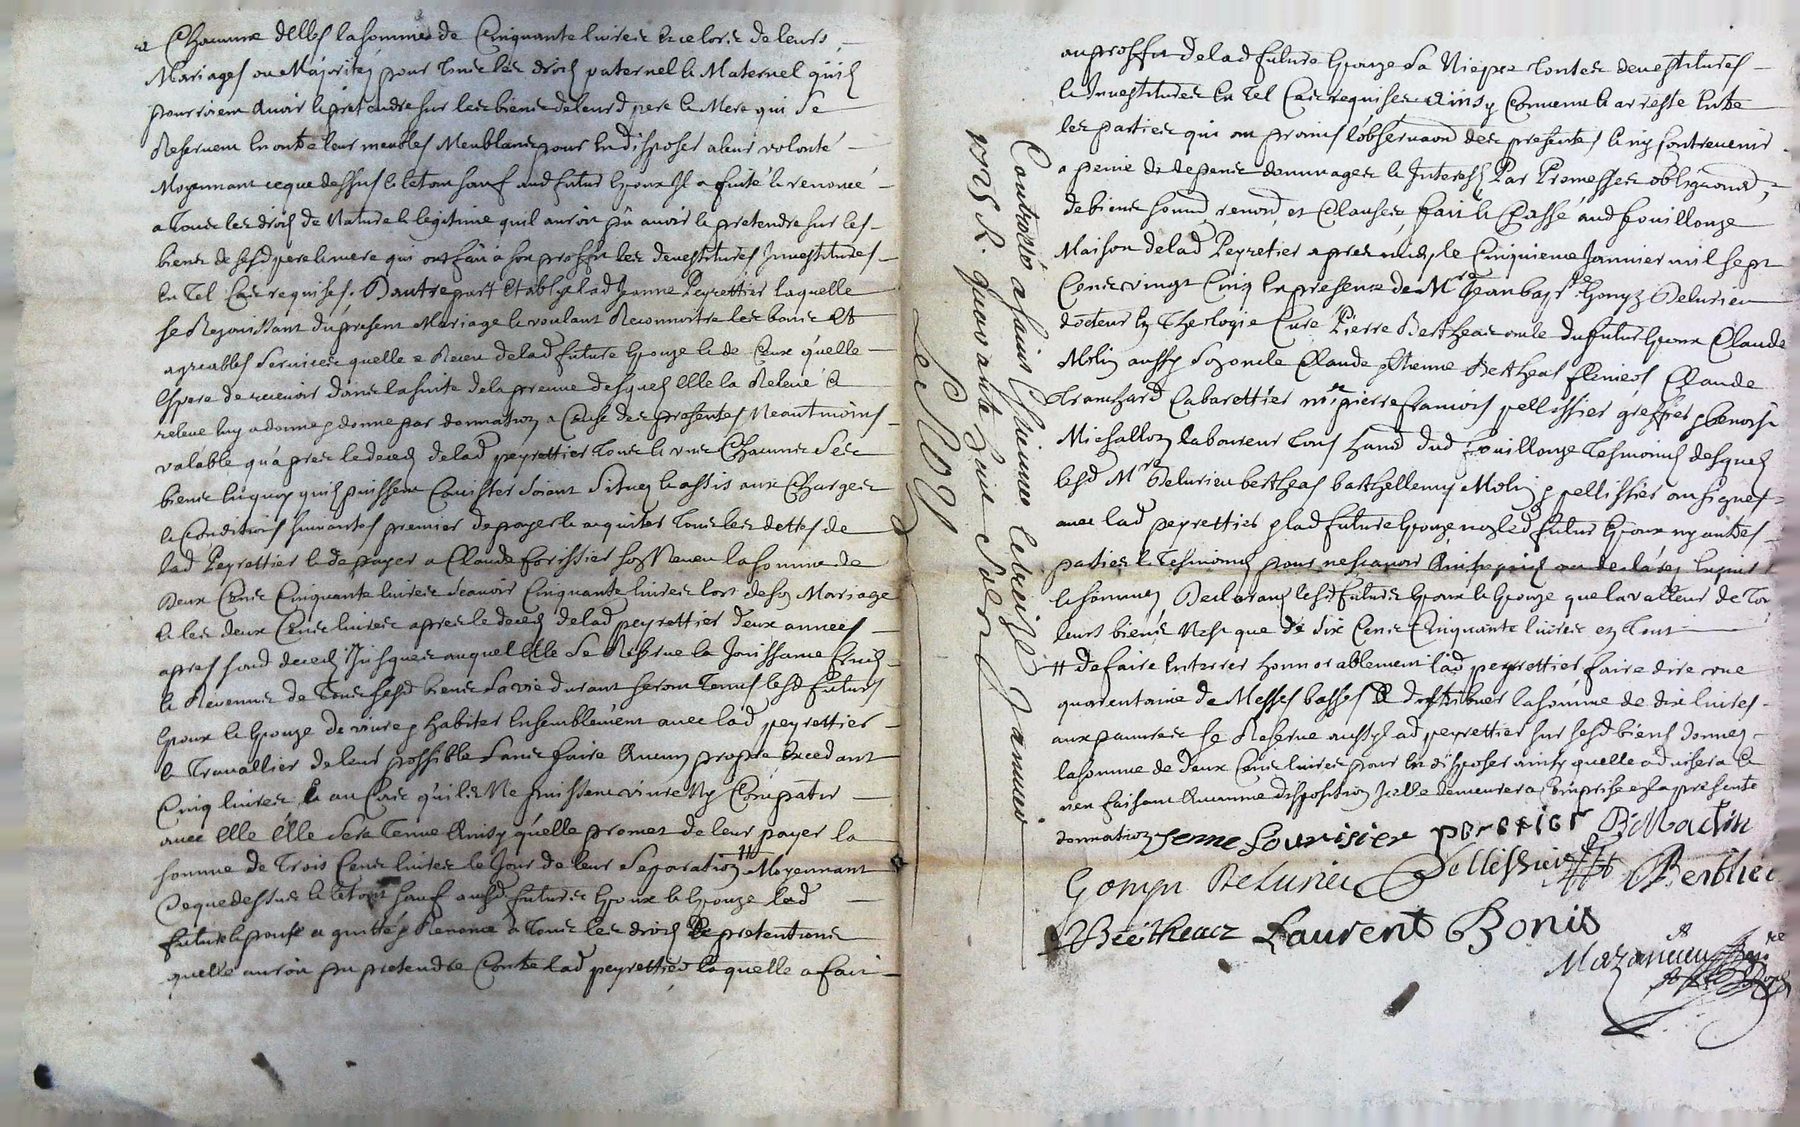 a Chacune delles la somme de Cinquante livres et ce lors de leurs
Mariages ou Majorités pour tous les droits paternel et Maternel quils
pourroient avoir et pretendre sur les biens de leursd pere et Mere qui se
Reservent en outre leur meubles Meublans pour en disposer a leur volonté
Moyennant ce que dessus et le tout sauf aud futur Epoux Il a quité et renoncé
a Tous les droits de Nature et legitime quil auroit pû avoir et pretendre sur les
biens de sesd pere et mere qui ont fait a son proffit les devestitures Investitures
En Tel Cas requises. Dautre part Establye lad Jeanne Peyrettier laquelle
se Rejouissant du present Mariage et voulant Reconnoitre les bons et
agreables services quelle a Receu de lad future Epouze et de Ceux quelle
Espere de recevoir dans la suitte de la preuve desquels elle la Releve et
releve luy a donne & donne par donnation a Cause des presentes Neantmoins
valable qu'apres le deceds de lad peyrettier Tous et uns Chacuns ses
biens en quoy quils puissent Consister soient Situés et assis aux Charges
et Conditions suivantes premier de payer et acquiter Tous les dettes de
lad Peyrettier et de payer a Claude forissier son Neveu la somme de
Deux Cens Cinquante livres scavoir Cinquante livres lors de son Mariage
et les deux Cens livres apres le deceds de lad peyrettier deux années
apres sond deceds Jusques auquel Elle se Reserve la Jouissance fruits
et Revenus de Tous sesd biens sa vie durant seront Tenus lesd futurs
Epoux et Epouze de vivre & habiter Ensemblement avec lad peyrettier
et Travallier de leur possible sans faire Aucun propre Excedant
Cinq livres et au Cas quils Ne puissent vivre Ny Compatir
avec Elle Elle sera Tenue Ainsy quelle promet de leur payer la
somme de Trois Cens livres le Jour de leur Separation # Moyennant
Ce que dessus et le tout sauf ausd futurs Epoux et Epouze lad
future epouse a quitté & Renoncé a Tous les droits et pretentions
quelle auroit pu pretendre Contre lad peyrettier laquelle a fait
Controllé a Saint Chaumon le treize Janvier
1725 R. quarante huit Sols
LeRoy
au proffit de lad future Epouze sa Niepce toutes devestitures
et Investitures En Tel Cas requises Ainsy Convenu et arresté Entre
les parties qui ont promis lobservaon des presentes et ny Contrevenir
a peine de depens dommages et Interests Par Promesses obligaons
de biens soumd, renond, et Clauses, fait et Passé aud fouillouze
Maison de lad Peyretier apres midy le Cinquieme Janvier mil sept
Cens vingt Cinq En presence de Mre Jean bapte Gonyn Delurieu
docteur En Theologie Curé Pierre Bertheas oncle du futur Epoux Claude
Molin aussy son oncle Claude & Etienne Bertheas Claude
Tranchard Cabarettier me pierre francois pellissier greffier & benoist
Michallon laboureur tous habd dud fouillouze Tesmoins desquels
lesd Mre Delurieu bertheas barthellemy Molin & pellissier ont signés
avec lad peyrettier & lad future Epouze non led futur Epoux ny autres
parties et Tesmoins pour ne scavoir Ainsy quils ont declaré Enquis
et sommés Declarans lesd futurs Epoux et Epouze que la valleur de Tous
leurs biens N'est que de six Cens Cinquante livres en tout
# de faire Enterrer honnorablement lad peyrettier, faire dire une
quarentaine de Messes basses & distribuer la somme de dix livres
aux pauvres se Reserve aussy lad peyrettier sur sesd biens donnés
la somme de deux Cens livres pour en disposer ainsy quelle advisera et
nen faisant Aucunne disposition Icelle demeurera Comprise en la presente
donnation Jenne Fourisier peretier B Molin
Gonyn Delurieu Pellissier Berthea
Bertheacz Laurent Bonis